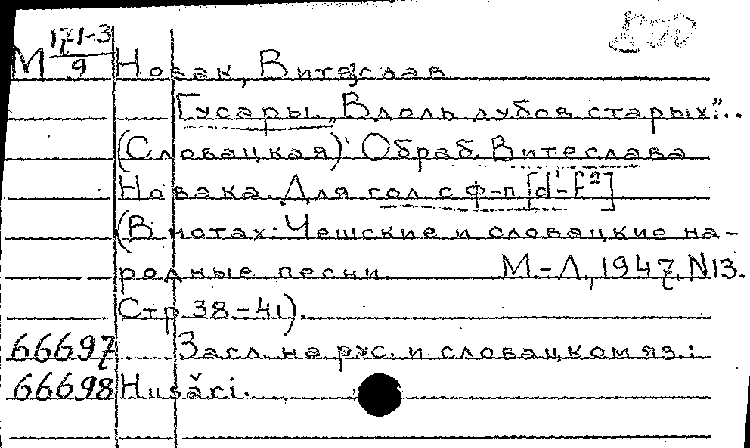 М 171-3/9 Новак, Витеслав
Гусары. „Вдоль дубов старых"...
(Словацкая). Обраб. Витеслава
Новака. Для гол. с ф-п. [d¹-f²]
(В нотах: Чешские и словацкие на-
родные песни. М.-Л., 1947. N13.
Стр. 38-41).
66697 Загл. на рус. и словацком яз.:
66698 Husări.